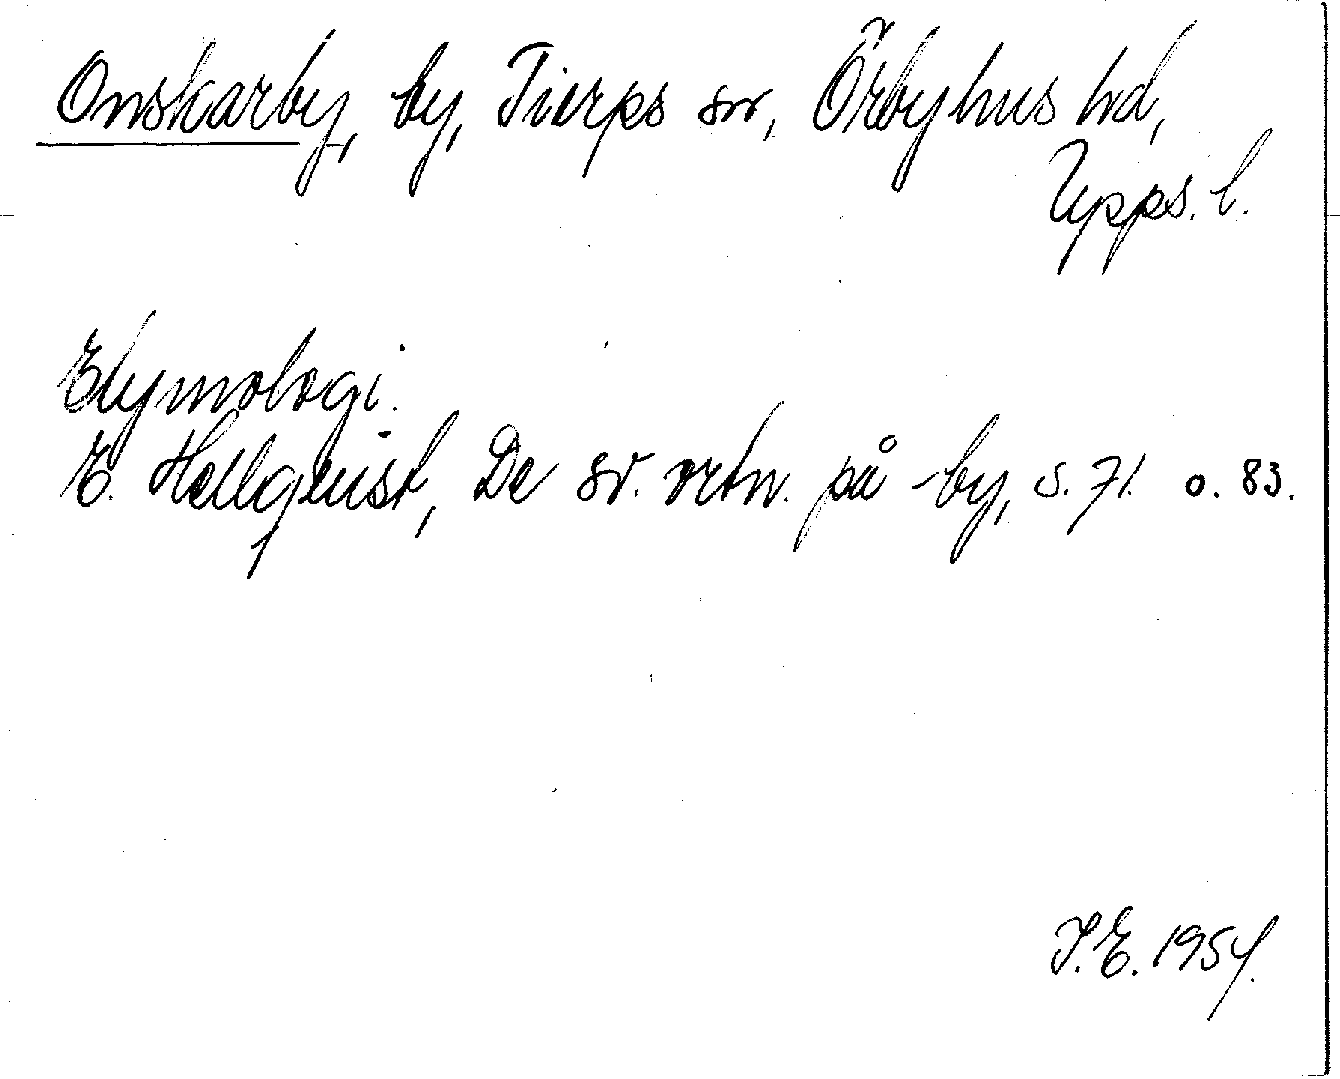 Onskarby, by, Tierps sn, Örbyhus hd,
Upps. l.
Etymologi.
E. Hellquist, De sv. ortn. på -by, s. 71. o. 83.
I.E. 1954.